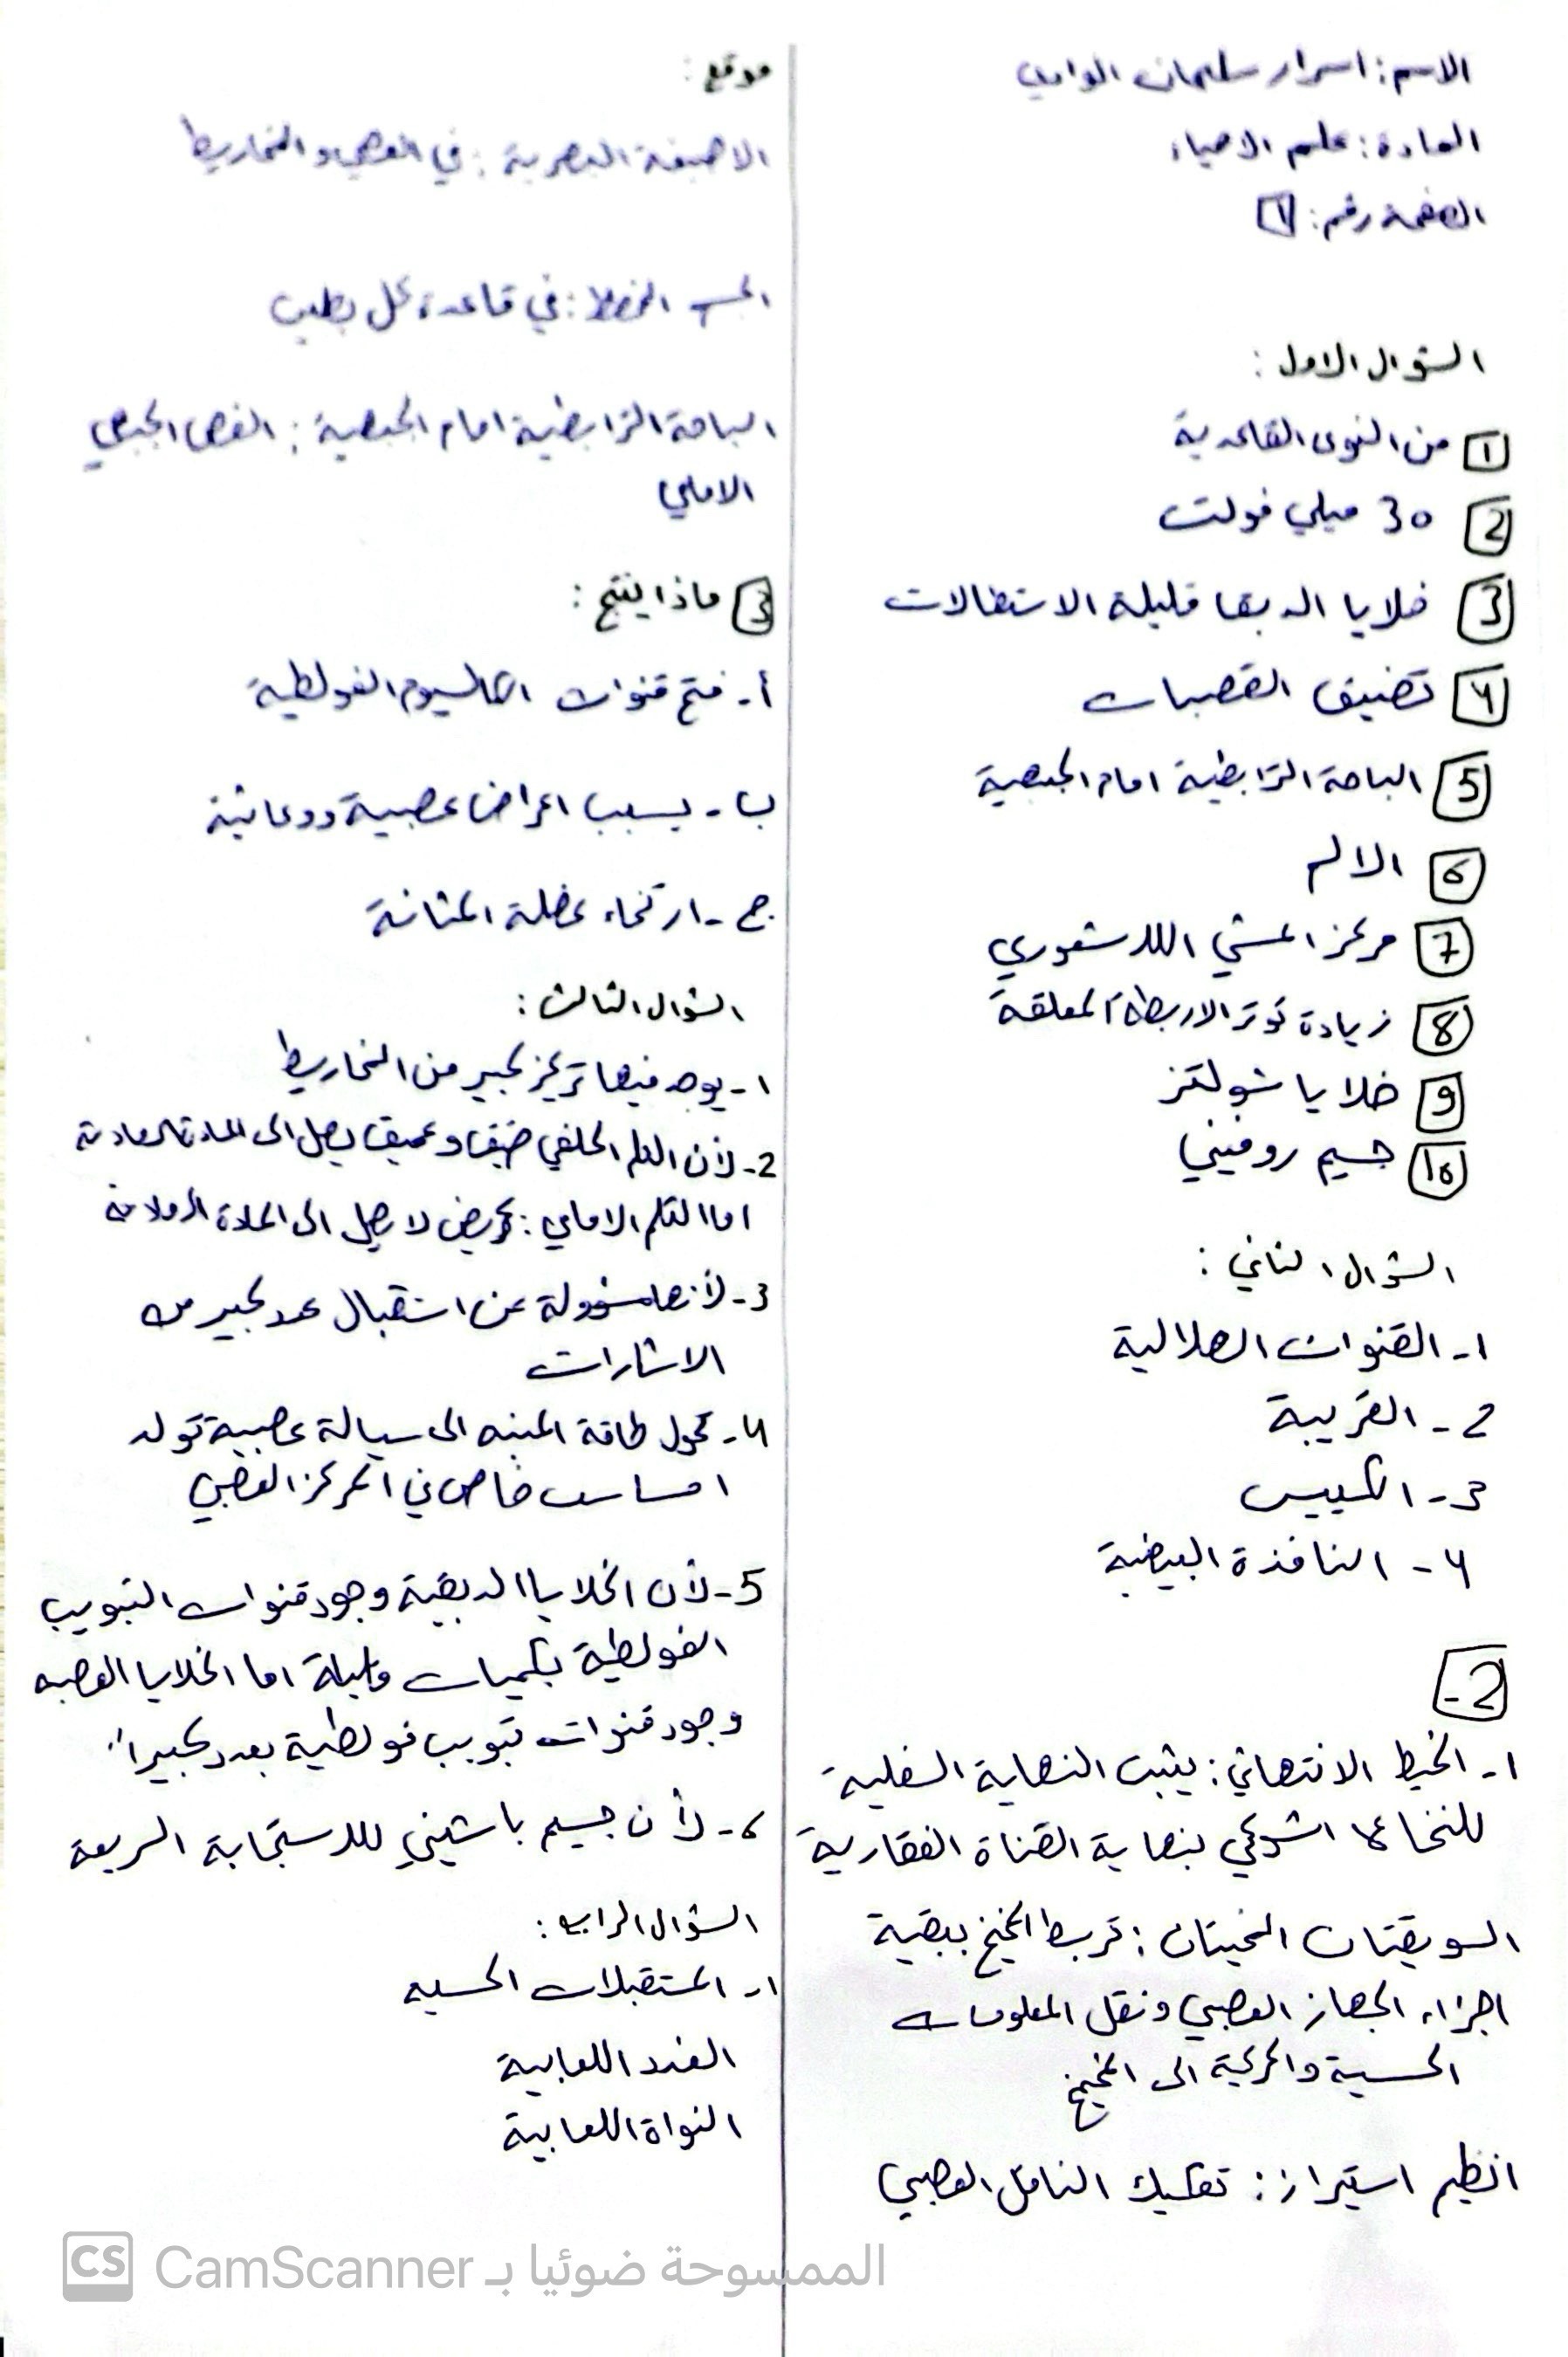 الاسم: اسرار سليمان الوا
المادة: علم الاحياء
الصفحة رقم: 1
السؤال الاول:
1 من النوى القاعدية
2 30 ميلي فولت
3 خلايا الدبقا قليلة الاستطالات
4 تضيق القصبات
5 الباحة الترابطية امام الجبهية
6 الالم
7 مركز المشي اللاشعوري
8 زيادة توتر الاربطة المعلقة
9 خلايا شولتز
10 جسيم روفيني
السؤال الثاني:
1- القنوات الهلالية
2- القريبة
3- الكييس
4- النافذة البيضية
2-
1- الخيط الانتهائي: يثبت النهاية السفلية
للنخاع الشوكي بنهاية القناة الفقارية
السويقتان المخيتان: تربط المخيخ ببقية
اجزاء الجهاز العصبي ونقل المعلومات
الحسية والحركية الى المخيخ
انظيم استيراز: تفكيك الناقل العصبي
موقع:
الاصبغة البصرية: في العصي والمخاريط
الجسر المخطط: في قاعدة كل بطين
الباحة الترابطية امام الجبهية: الفص الجبهي
الامامي
3 ماذا ينتج:
أ- فتح قنوات الكالسيوم الفولطية
ب- يسبب اعراض عصبية ودعائية
ج- ارتخاء عضلة المثانة
السؤال الثالث:
1- يوجد فيها تركيز كبير من المخاريط
2- لأن الثلم الخلفي ضيق وعميق يصل الى المادة الرمادية
اما الثلم الامامي: عريض لا يصل الى المادة الرمادية
3- لأنها مسؤولة عن استقبال عدد كبير من
الاشارات
4- تحول طاقة المنبه الى سيالة عصبية تولد
احساسا خاص في المركز العصبي
5- لأن الخلايا الدبقية وجود قنوات التبويب
الفولطية بكميات قليلة اما الخلايا العصبيه
وجود قنوات تبويب فولطية بعدد كبيراً
6- لأن جسيم باشيني للاستجابة السريعة
السؤال الرابع:
1- المستقبلات الحسيه
الغدد اللعابية
النواة اللعابية
CS CamScanner الممسوحة ضوئيا بـ